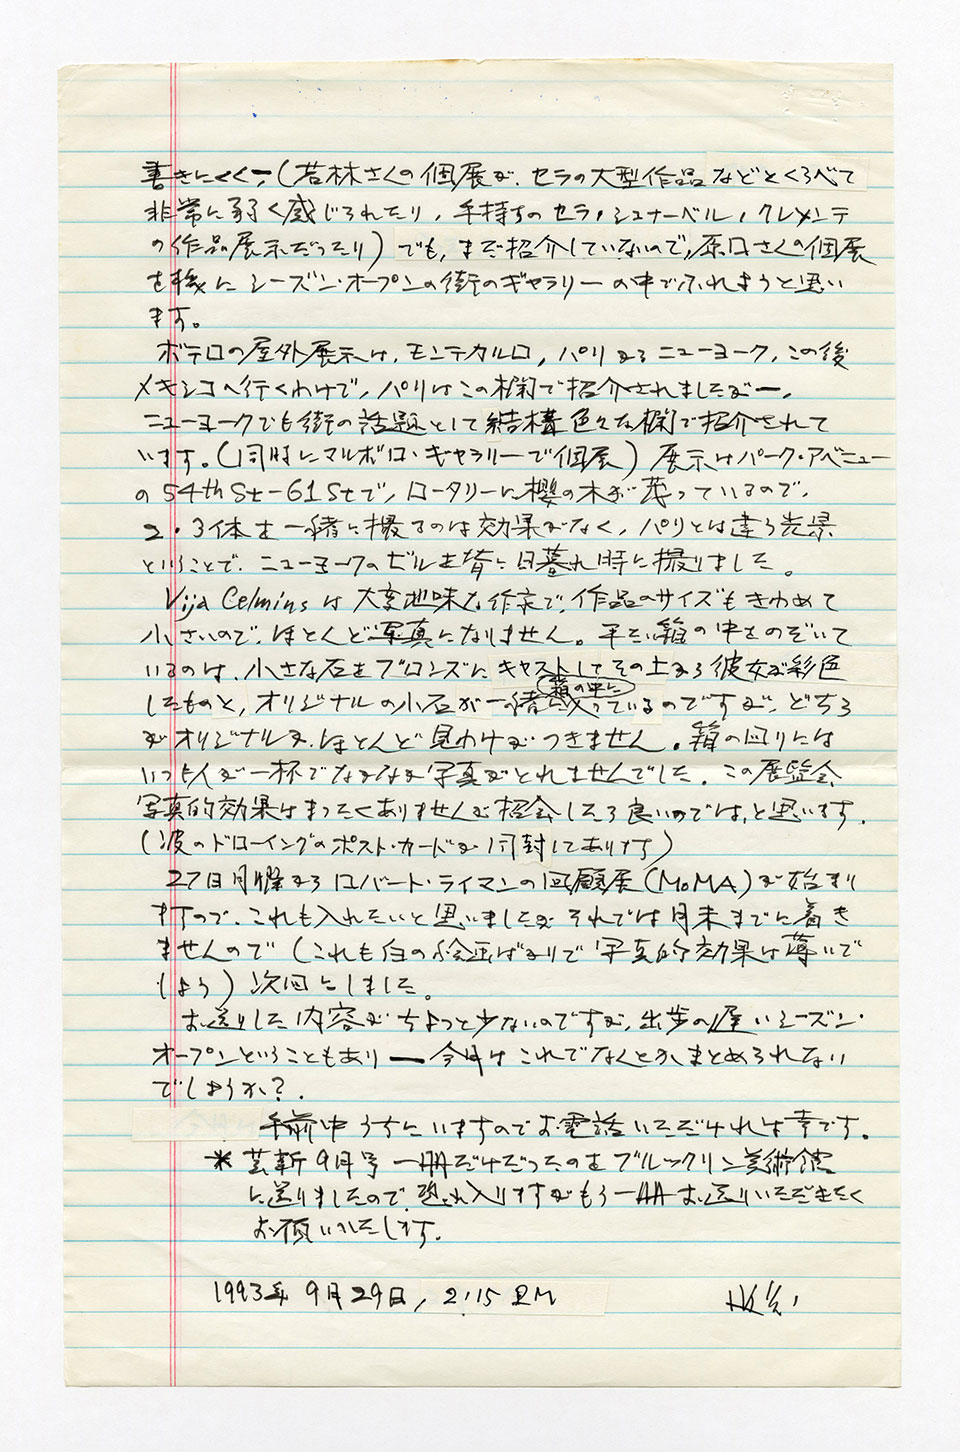 書きにくく、(若林さんの個展が、セラの大型作品などとくらべて
非常に弱く感じられたり、手持ちのセラ,シュナーベル,クレメンテ
の作品展示だったり)でも,まだ紹介していないので,原口さんの個展
を機にシーズン・オープンの街のギャラリーの中でふれようと思い
ます。
ボテロの屋外展示は,モンテカルロ,パリからニューヨーク,この後
メキシコへ行くわけで,パリはこの欄で紹介されましたがー,
ニューヨークでも街の話題として結構色々な欄で紹介されて
います。(同時にマルボロ・ギャラリーで個展)展示はパーク・アベニュー
の54th St-61Stで,ロータリーに櫻の木が茂っているので,
2・3体を一緒に撮るのは効果がなく,パリとは違う背景
ということで,ニューヨークのビルを背に日暮れ時に撮りました。
Vija Celminsは大変地味な作家で,作品のサイズもきわめて
小さいので,ほとんど写真になりません。平たい箱の中をのぞいて
いるのは,小さな石をブロンズにキャストしてその上から彼女が彩色
したものと,オリジナルの小石が一緒に(箱の中に)入っているのですが,どちら
がオリジナルか,ほとんど見わけがつきません。箱の回りには
いつも人が一杯でなかなか写真がとれませんでした。この展覧会,
写真的効果はまったくありませんが紹介したら良いのでは,と思います.
(波のドローイングのポスト・カードが同封してあります)
27日月曜からロバート・ライマンの回顧展(MoMA)が始まり
ますので,これも入れたいと思いましたがそれでは月末までに着き
ませんので(これも白の絵画ばかりで写真的効果は薄いで
しょう)次回にしました。
お送りした内容がちょっと少ないのですが,出歩の遅いシーズン・
オープンということもあり ー 今月はこれでなんとかまとめられない
でしょうか?.
午前中うちにいますのでお電話いただければ幸です。
*芸新9月号一冊だけだったのをブルックリン美術館
に送りましたので,恐れ入りますがもう一冊お送りいただきたく
お願いいたします.
1993年9月29日,2:15 PM